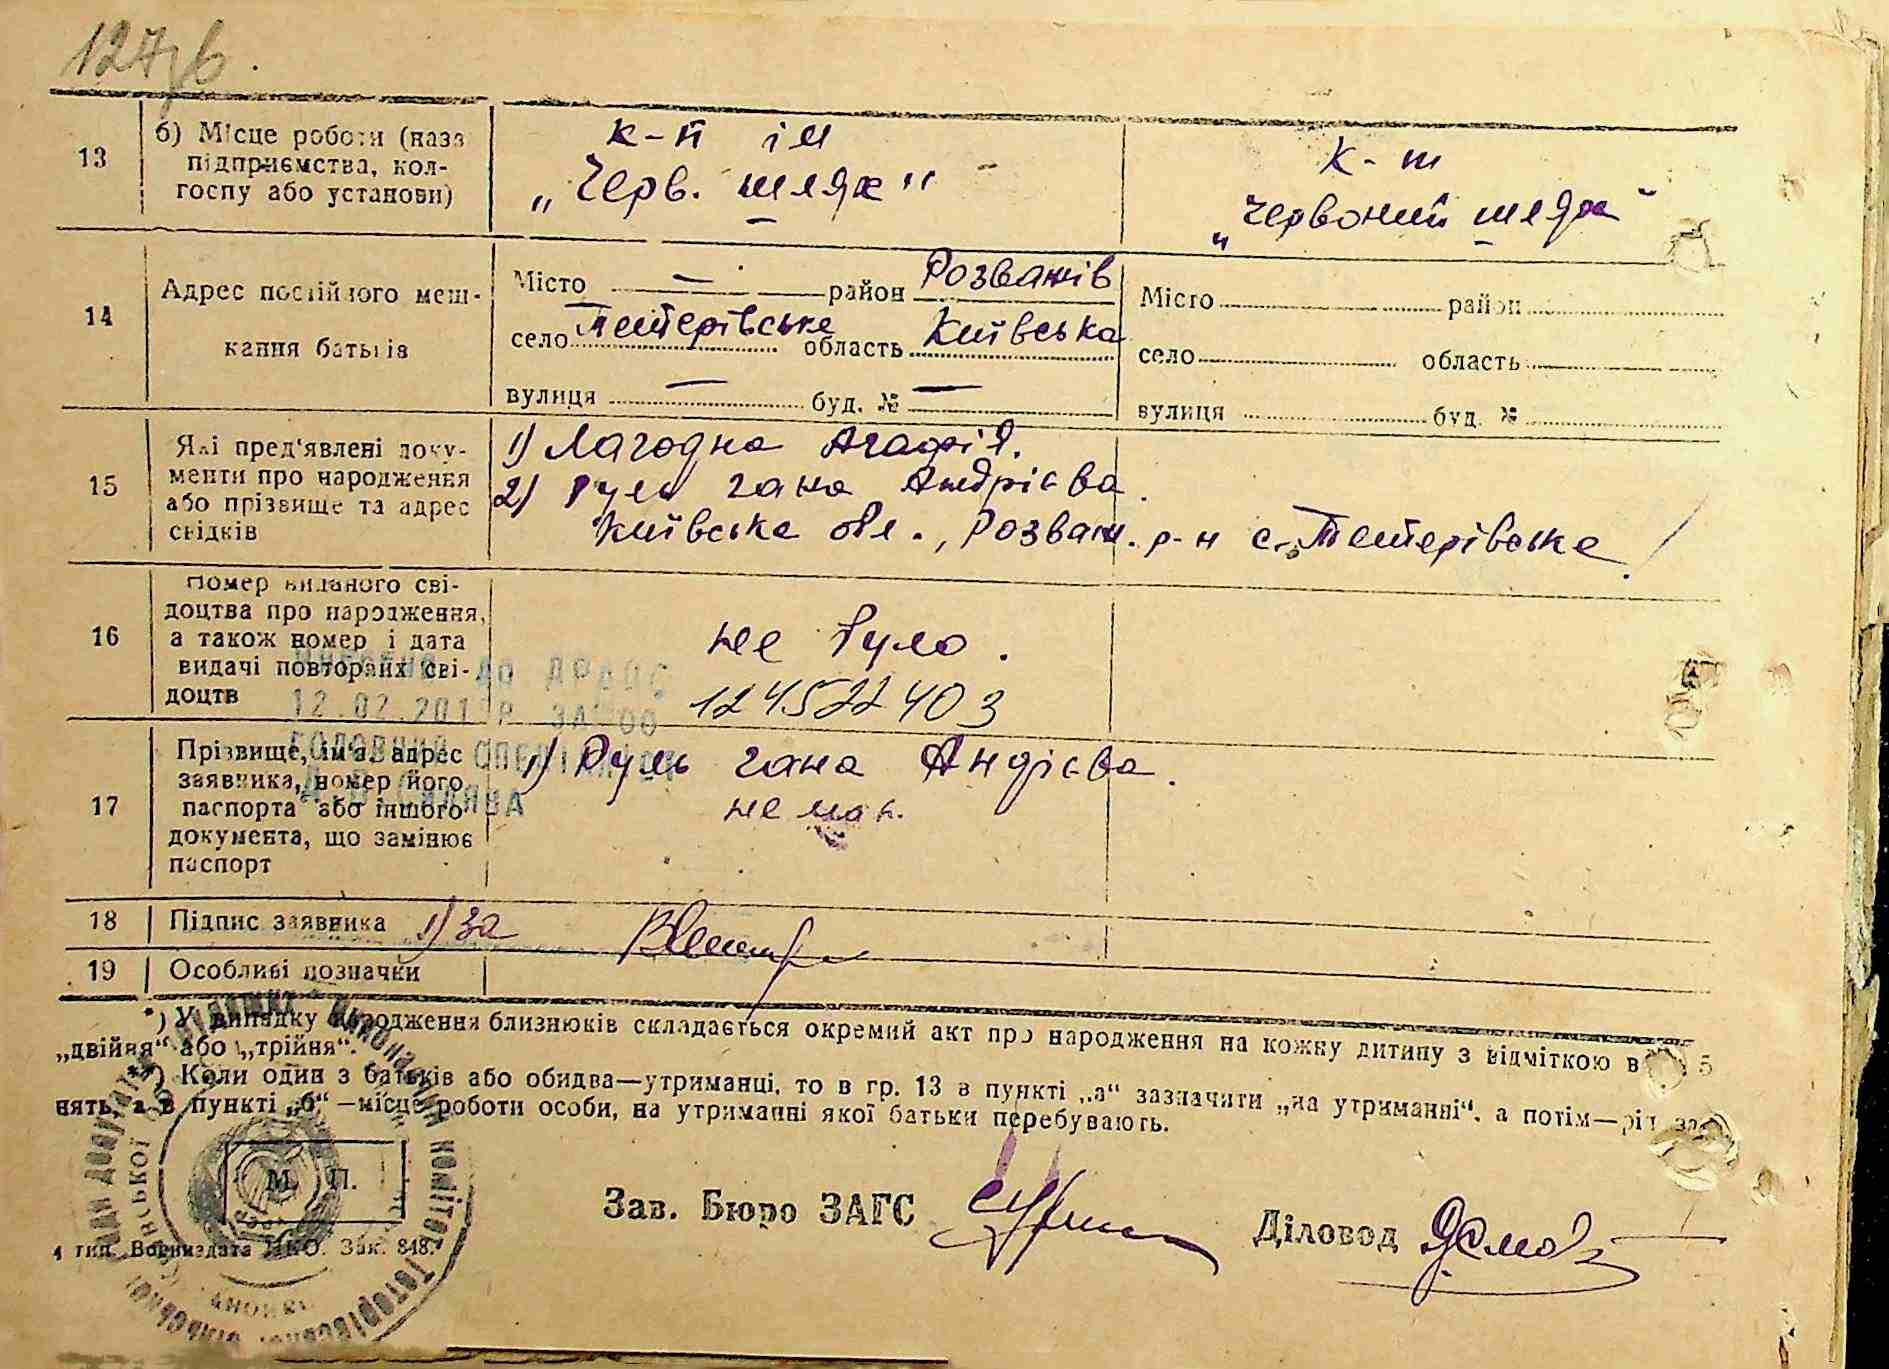 127зв.
13
б) Місце роботи (назва
підприємства, кол-
госпу або установи)
к-п ім
„Черв. шлях"
к-т
„Червоний шлях"
14
Адрес постійного меш-
кання батьків
Місто — район Розважів
село Тетерівське область Київська
вулиця — буд. № —
Місто район
село область
вулиця буд. №
15
Які пред'явлені доку-
менти про народження
або прізвище та адрес
свідків
1) Лагодна Агафія.
2) Руль Гана Андрієва.
Київська обл., Розваж. р-н с. Тетерівське
16
Номер виданого сві-
доцтва про народження,
а також номер і дата
видачі повторних сві-
доцтв
не було.
124522403
ДО ДРАЦС
12.02.201
17
Прізвище, ім'я, адрес
заявника, номер його
паспорта або іншого
документа, що замінює
паспорт
1) Руль Гана Андієва.
не має.
18
Підпис заявника 1) за
19
Особливі позначки
*) У випадку народження близнюків складається окремий акт про народження на кожну дитину з відміткою в 5
„двійня" або „трійня".
**) Коли один з батьків або обидва—утриманці, то в гр. 13 в пункті „а" зазначити „на утриманні", а потім—рід за-
нять, а в пункті „б"—місце роботи особи, на утриманні якої батьки перебувають.
М. П.
Зав. Бюро ЗАГС
Діловод
4 тип. Воениздата НКО. Зак. 848.